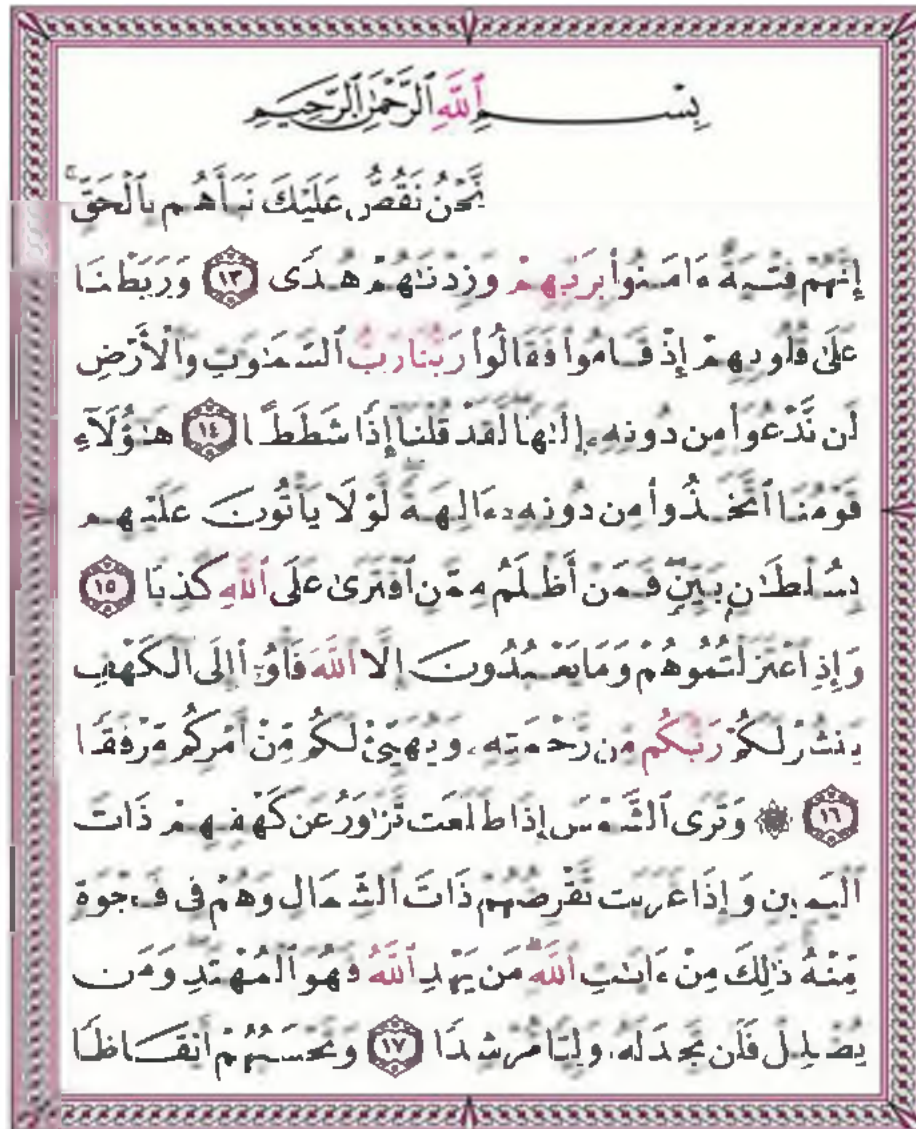 بِسْمِ ٱللَّهِ ٱلرَّحْمَٰنِ ٱلرَّحِيمِ
نَّحْنُ نَقُصُّ عَلَيْكَ نَبَأَهُم بِٱلْحَقِّ ۚ
إِنَّهُمْ فِتْيَةٌ ءَامَنُوا۟ بِرَبِّهِمْ وَزِدْنَٰهُمْ هُدًى ١٣ وَرَبَطْنَا
عَلَىٰ قُلُوبِهِمْ إِذْ قَامُوا۟ فَقَالُوا۟ رَبُّنَا رَبُّ ٱلسَّمَٰوَٰتِ وَٱلْأَرْضِ
لَن نَّدْعُوَا۟ مِن دُونِهِۦٓ إِلَٰهًا ۖ لَّقَدْ قُلْنَآ إِذًا شَطَطًا ١٤ هَٰٓؤُلَآءِ
قَوْمُنَا ٱتَّخَذُوا۟ مِن دُونِهِۦٓ ءَالِهَةً ۖ لَّوْلَا يَأْتُونَ عَلَيْهِم
بِسُلْطَٰنٍۭ بَيِّنٍ ۖ فَمَنْ أَظْلَمُ مِمَّنِ ٱفْتَرَىٰ عَلَى ٱللَّهِ كَذِبًا ١٥
وَإِذِ ٱعْتَزَلْتُمُوهُمْ وَمَا يَعْبُدُونَ إِلَّا ٱللَّهَ فَأْوُۥٓا۟ إِلَى ٱلْكَهْفِ
يَنشُرْ لَكُمْ رَبُّكُم مِّن رَّحْمَتِهِۦ وَيُهَيِّئْ لَكُم مِّنْ أَمْرِكُم مِّرْفَقًا
١٦ ۞ وَتَرَى ٱلشَّمْسَ إِذَا طَلَعَت تَّزَٰوَرُ عَن كَهْفِهِمْ ذَاتَ
ٱلْيَمِينِ وَإِذَا غَرَبَت تَّقْرِضُهُمْ ذَاتَ ٱلشِّمَالِ وَهُمْ فِى فَجْوَةٍ
مِّنْهُ ۚ ذَٰلِكَ مِنْ ءَايَٰتِ ٱللَّهِ ۗ مَن يَهْدِ ٱللَّهُ فَهُوَ ٱلْمُهْتَدِ ۖ وَمَن
يُضْلِلْ فَلَن تَجِدَ لَهُۥ وَلِيًّا مُّرْشِدًا ١٧ وَتَحْسَبُهُمْ أَيْقَاظًا